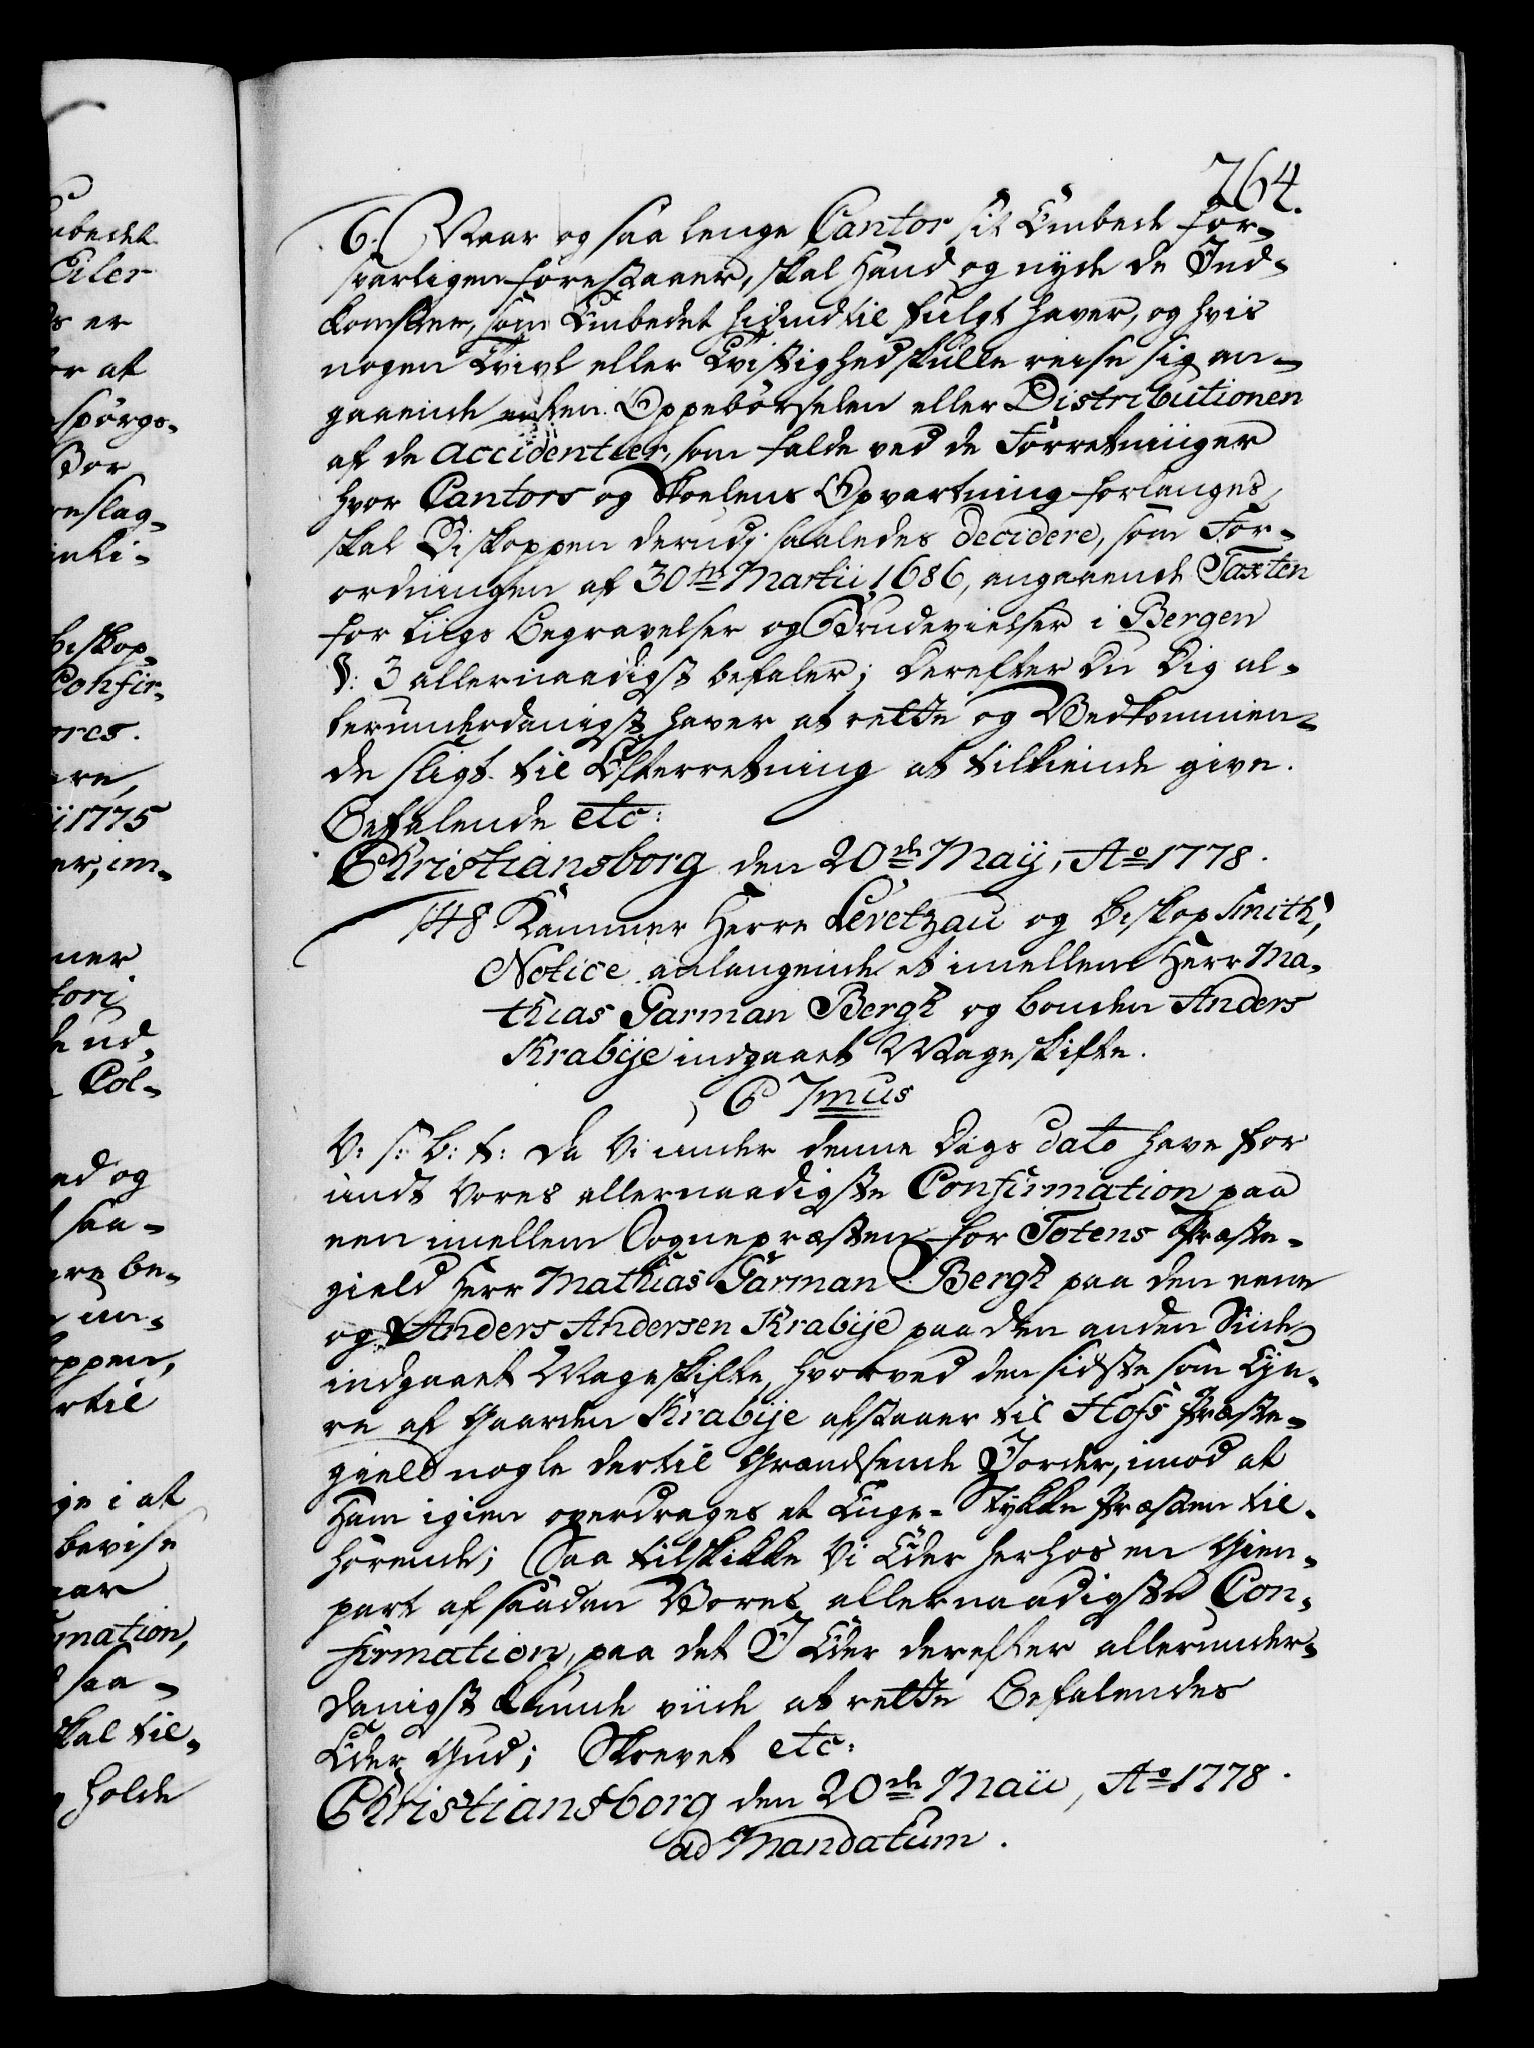 764.
6. Naar og saa lenge Cantor sit Embede for-
svarligen forestaaer, skal hand og nyde de Ind-
komster, som Embedet hidindtil fulgt haver, og hvis
nogen Tvivl eller Tvistighed skulle reise sig an-
gaaende enten Oppebørselen eller Distributionen
af de Accidentier, som falde ved de Forretninger
hvor Cantors og Skoelens Opvartning forlanges,
skal Biskoppen derudj saaledes decidere, som For-
ordningen af 30te Martii 1686, angaaende Taxten
for Liigs Begravelser og Brudevielser i Bergen
§: 3 allernaadigst befaler; Derefter Du Dig al-
lerunderdanigst haver at rette og Vedkommen-
de sligt til Efterretning at tilkiende give.
Befalende etc:
Christiansborg den 20de Maij, Ao 1778.
148 Kammer Herre Levetzau og Biskop Smith,
Notice anlangende et imellem Herr Ma-
thias Garman Bergh og Bonden Anders
Krabije indgaaet Mageskifte.
C 7mus
V: s: b: t: Da Vi under denne Dags dato have for
undt Vores allernaadigste Confirmation paa
een imellem Sognepræsten for Totens Præste-
gield Herr Mathias Garman Bergh paa den eene
og Anders Andersen Krabije paa den anden Siide
indgaaet Mageskifte, hvorved den sidste som Eje-
re af Gaarden Krabije afstaaer til Hofs Præste-
gield nogle dertil Grændsende Jorder, imod at
ham igien overdrages et Enge-Stykke Præsten til-
hørende; Saa tilskikke Vi Eder herhos en Gien-
part af saadan Vores allernaadigste Con-
firmation, paa det I Eder derefter allerunder-
danigst kunde viide at rette Befalendes
Eder Gud; Skrevet etc:
Christiansborg den 20de Maii, Ao 1778.
ad Mandatum.